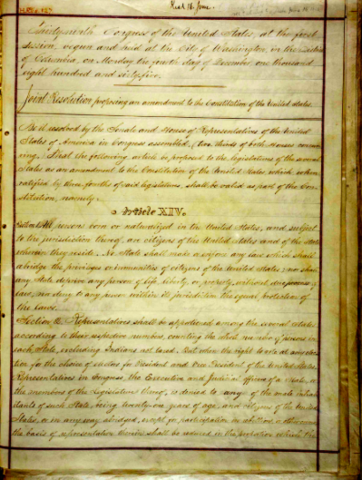 Thirty-ninth Congress of the United States, at the first
session, begun and held at the City of Washington, in the District
of Columbia, on Monday the fourth day of December one thousand
eight hundred and sixty-five.
Joint Resolution proposing an amendment to the Constitution of the United States.
Be it resolved by the Senate and House of Representatives of the United
States of America in Congress assembled, (two thirds of both Houses concur-
ring,) That the following article be proposed to the legislatures of the several
States as an amendment to the Constitution of the United States, which, when
ratified by three fourths of said legislatures, shall be valid as part of the Con-
stitution, namely:
Article XIV.
Section 1. All persons born or naturalized in the United States, and subject
to the jurisdiction thereof, are citizens of the United States and of the State
wherein they reside. No State shall make or enforce any law which shall
abridge the privileges or immunities of citizens of the United States; nor shall
any State deprive any person of life, liberty, or property, without due process of
law, nor deny to any person within its jurisdiction the equal protection of
the laws.
Section 2. Representatives shall be apportioned among the several States
according to their respective numbers, counting the whole number of persons in
each State, excluding Indians not taxed. But when the right to vote at any elec-
tion for the choice of electors for President and Vice President of the United States,
Representatives in Congress, the Executive and Judicial officers of a State, or
the members of the Legislature thereof, is denied to any of the male inhabi-
tants of such State, being twenty-one years of age, and citizens of the United
States, or in any way abridged, except for participation in rebellion, or other crime,
the basis of representation therein shall be reduced in the proportion which the